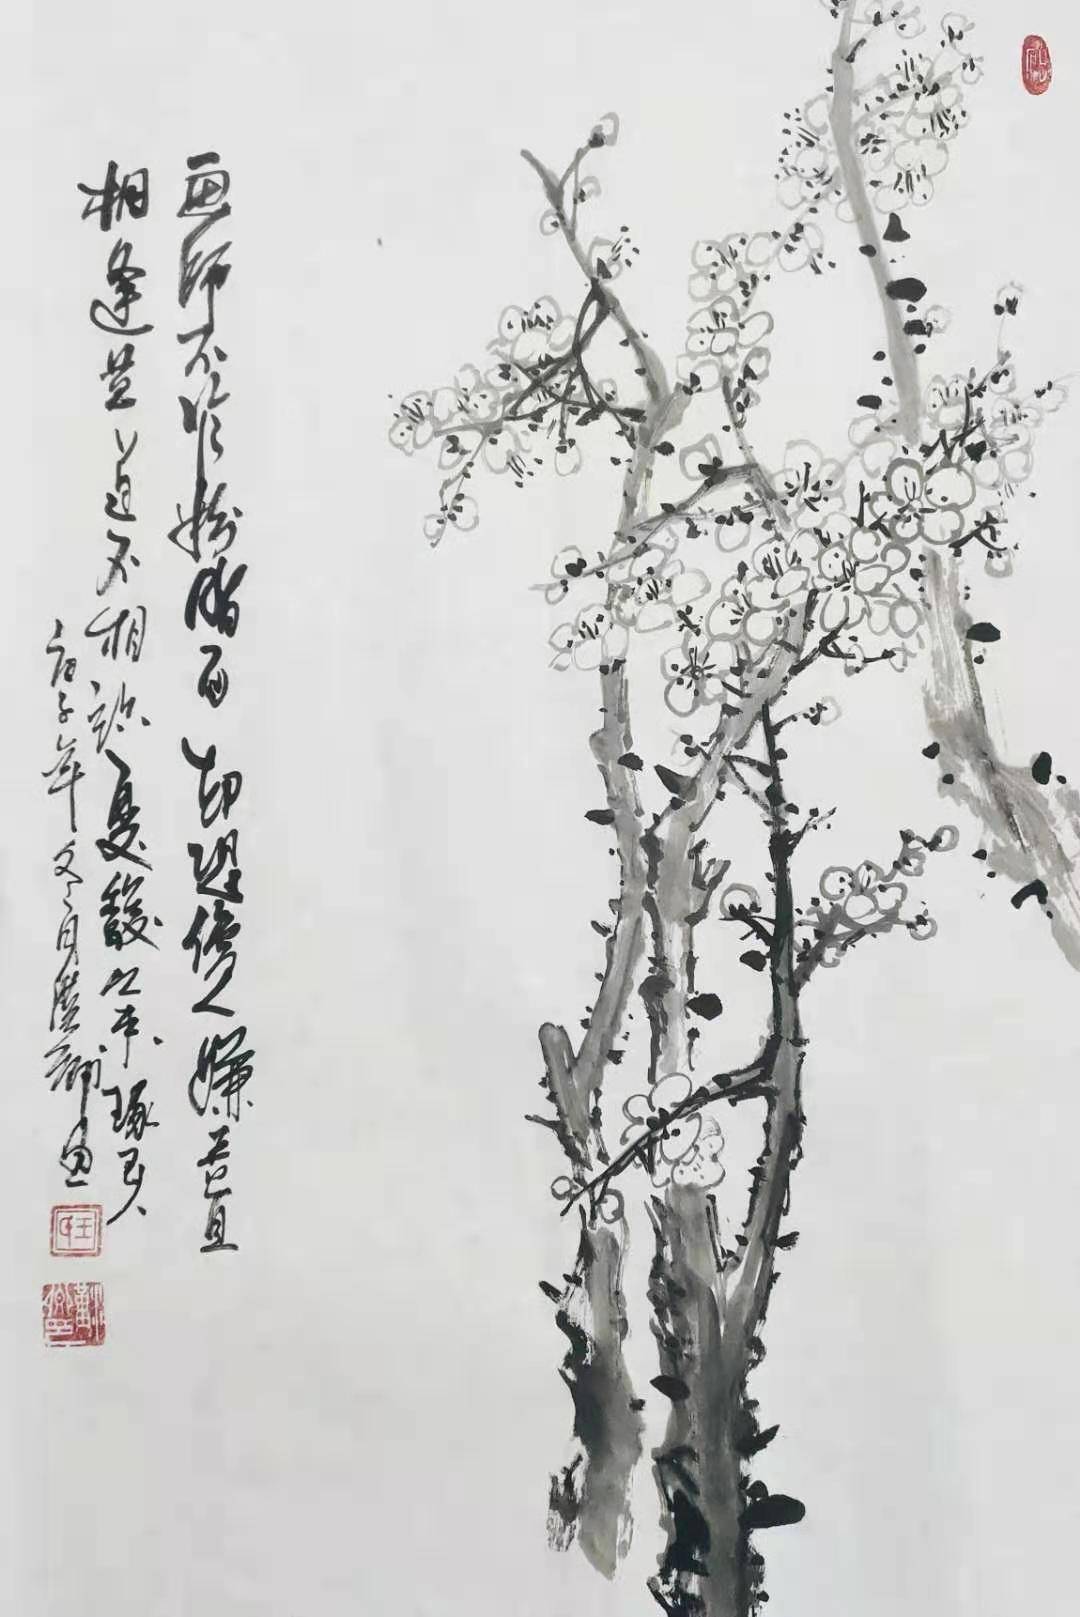 画师不作粉脂面却恐傍人嫌我直
相逢莫道不相识夏馥从来琢玉人
庚子年冬月
画